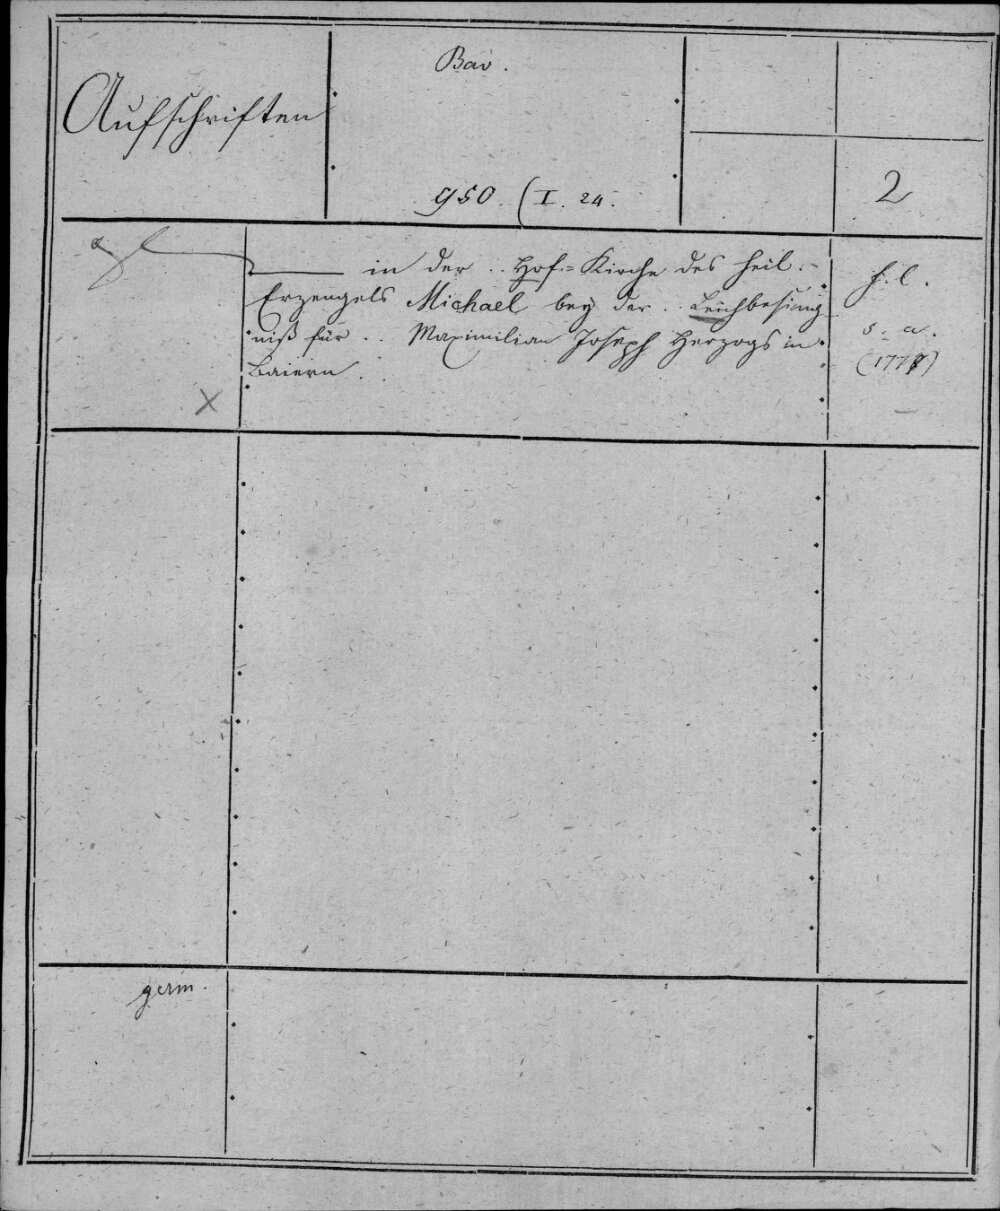 Aufschriften
Bav.
950. (I. 24.
2
— in der .. Hof=Kirche des heil.
Erzengels Michael bey der .. Leichbesing
niß für .. Maximilian Joseph Herzogs in
Baiern.
s. l.
s. a.
(1777)
X
germ.